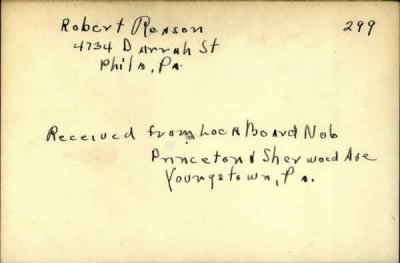 Robert Reason 299
4734 Darrah St
Phila, Pa.
Received from Local Board No 6
Princeton & Sherwood Ave
Youngstown, Pa.